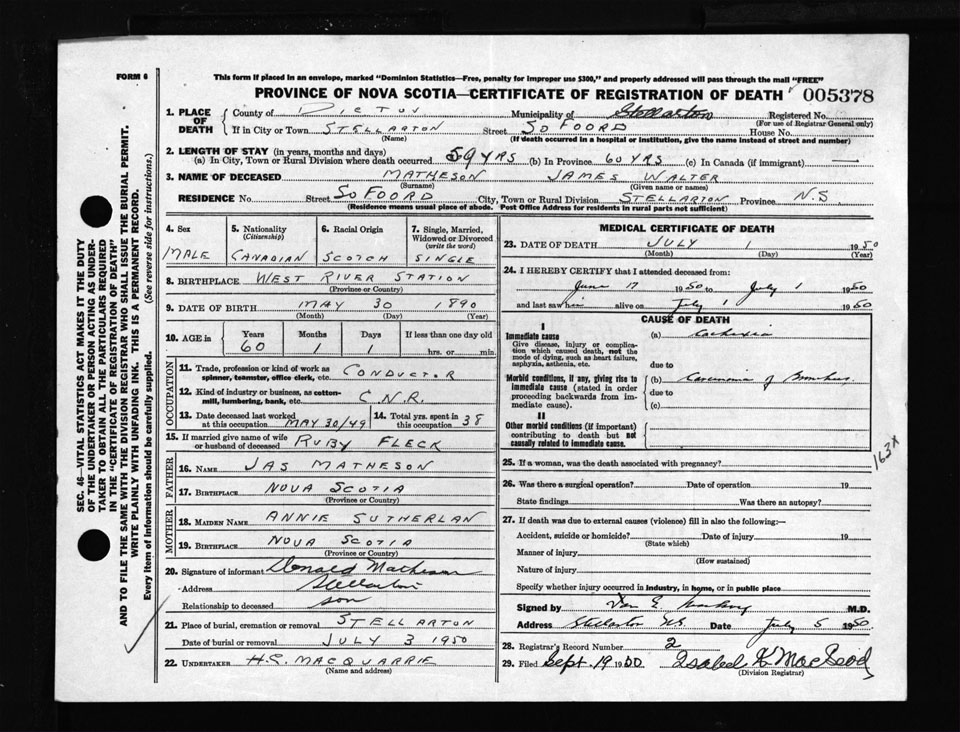 FORM 6
This form if placed in an envelope, marked "Dominion Statistics—Free, penalty for improper use $300," and properly addressed will pass through the mail "FREE"
PROVINCE OF NOVA SCOTIA—CERTIFICATE OF REGISTRATION OF DEATH 005378
1. PLACE OF DEATH County of PICTOU Municipality of Stellarton Registered No.
(For use of Registrar General only)
If in City or Town STELLARTON Street SO FOORD House No.
(Name) (If death occurred in a hospital or institution, give the name instead of street and number)
2. LENGTH OF STAY (in years, months and days)
(a) In City, Town or Rural Division where death occurred 59 YRS (b) In Province 60 YRS (c) In Canada (if immigrant) —
3. NAME OF DECEASED MATHESON JAMES WALTER
(Surname) (Given name or names)
RESIDENCE No. Street SO FOORD City, Town or Rural Division STELLARTON Province N.S
(Residence means usual place of abode. Post Office Address for residents in rural parts not sufficient)
4. Sex MALE
5. Nationality (Citizenship) CANADIAN
6. Racial Origin SCOTCH
7. Single, Married, Widowed or Divorced (write the word) SINGLE
8. BIRTHPLACE WEST RIVER STATION
(Province or Country)
9. DATE OF BIRTH MAY 30 1890
(Month) (Day) (Year)
10. AGE in Years Months Days If less than one day old
60 1 1 hrs. or min.
OCCUPATION
11. Trade, profession or kind of work as spinner, teamster, office clerk, etc. CONDUCTOR
12. Kind of industry or business, as cotton-mill, lumbering, bank, etc. C.N.R.
13. Date deceased last worked at this occupation MAY 30/49
14. Total yrs. spent in 38
15. If married give name of wife or husband of deceased RUBY FLECK
FATHER
16. NAME JAS MATHESON
17. BIRTHPLACE NOVA SCOTIA
(Province or Country)
MOTHER
18. MAIDEN NAME ANNIE SUTHERLAN
19. BIRTHPLACE NOVA SCOTIA
(Province or Country)
20. Signature of informant Donald Matheson
Address Stellarton
Relationship to deceased son
21. Place of burial, cremation or removal STELLARTON
Date of burial or removal JULY 3 1950
22. UNDERTAKER H.S. MACQUARRIE
(Name and address)
MEDICAL CERTIFICATE OF DEATH
23. DATE OF DEATH JULY 1 1950
(Month) (Day) (Year)
24. I HEREBY CERTIFY that I attended deceased from:
June 17 1950 to July 1 1950
and last saw him alive on July 1 1950
CAUSE OF DEATH
I
Immediate cause (a) Cachexia
Give disease, injury or complication which caused death, not the mode of dying, such as heart failure, asphyxia, asthenia, etc.
due to
Morbid conditions, if any, giving rise to immediate cause (stated in order proceeding backwards from immediate cause). (b) Carcinoma of Bronchus
due to
(c)
II
Other morbid conditions (if important) contributing to death but not causally related to immediate cause.
163X
25. If a woman, was the death associated with pregnancy?
26. Was there a surgical operation? Date of operation 19
State findings Was there an autopsy?
27. If death was due to external causes (violence) fill in also the following:—
Accident, suicide or homicide? Date of injury 19
(State which)
Manner of injury
(How sustained)
Nature of injury
Specify whether injury occurred in industry, in home, or in public place
Signed by M.D.
Address Stellarton N.S. Date July 5 1950
28. Registrar's Record Number 2
29. Filed Sept. 19 1950 Isabel K MacLeod
(Division Registrar)
SEC. 46—VITAL STATISTICS ACT MAKES IT THE DUTY
OF THE UNDERTAKER OR PERSON ACTING AS UNDER-
TAKER TO OBTAIN ALL THE PARTICULARS REQUIRED
IN THE "CERTIFICATE OF REGISTRATION OF DEATH"
AND TO FILE THE SAME WITH THE DIVISION REGISTRAR WHO SHALL ISSUE THE BURIAL PERMIT.
WRITE PLAINLY WITH UNFADING INK. THIS IS A PERMANENT RECORD.
Every item of information should be carefully supplied. (See reverse side for instructions.)